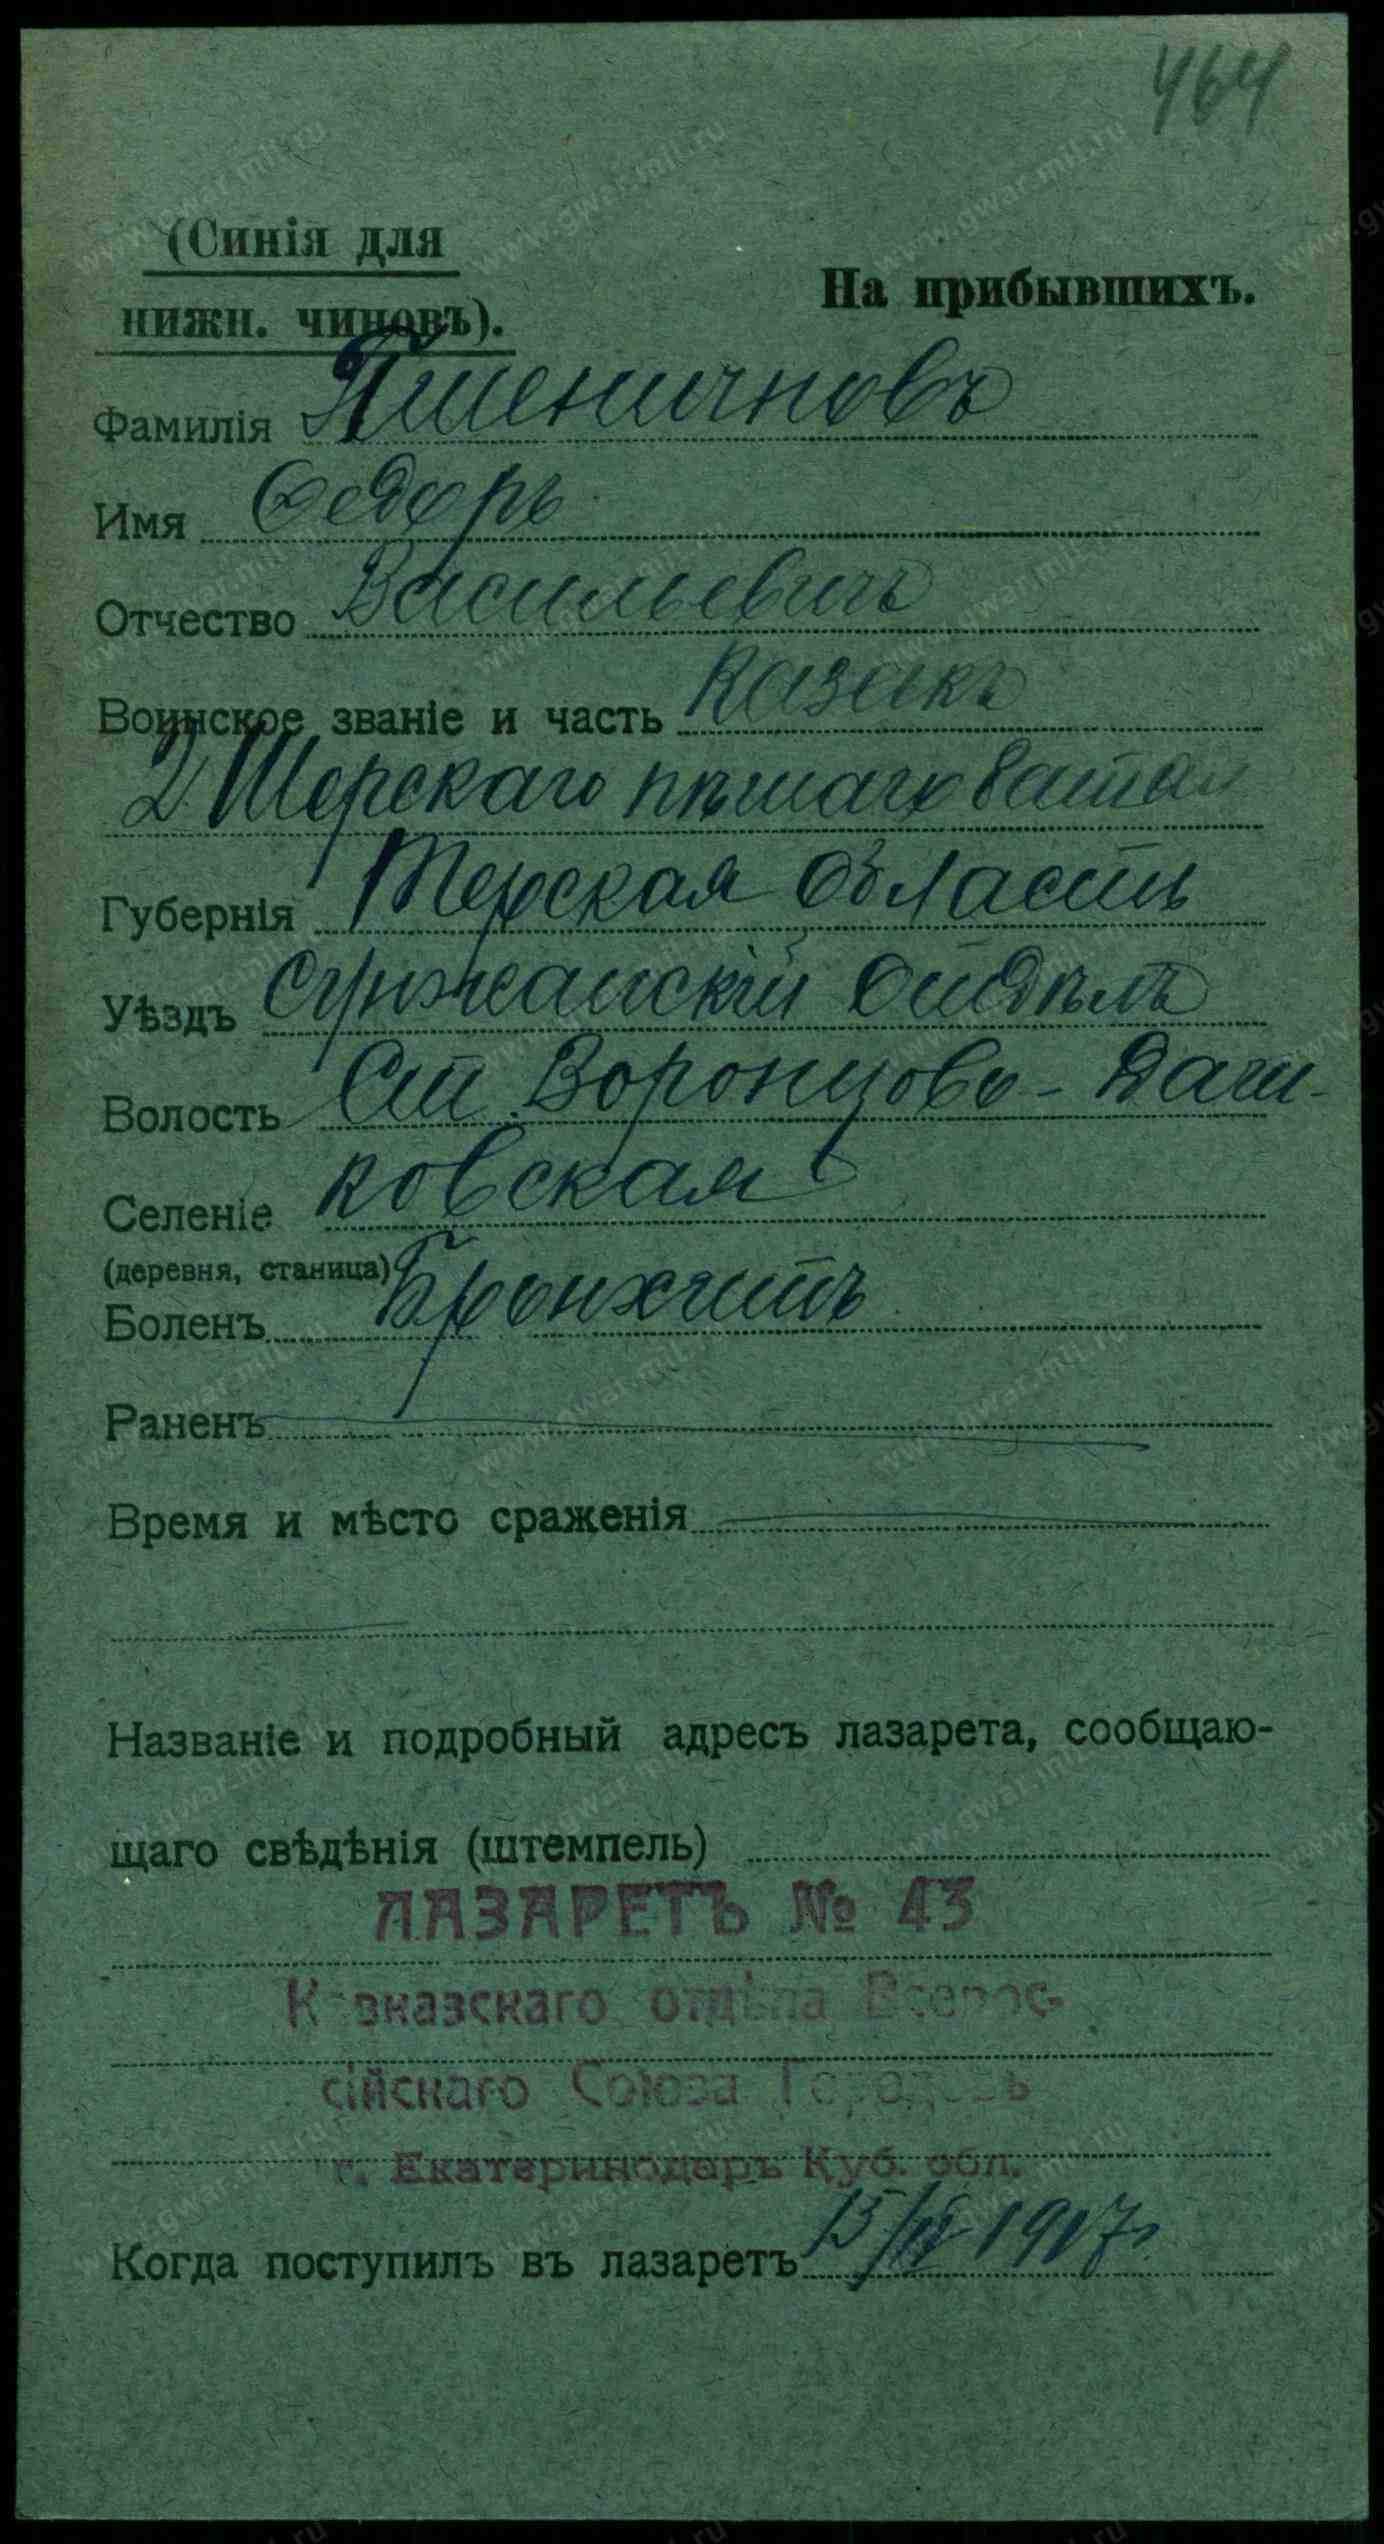 464
(Синія для
нижн. чиновъ).
На прибывшихъ.
Фамилія Пшеничновъ
Имя Ѳедоръ
Отчество Васильевичъ
Воинское званіе и часть Казакъ
2 Терскаго пѣшаго батал
Губернія Терская Область
Уѣздъ Сунжанскій Отдѣлъ
Волость Ст. Воронцово-Даш-
Селеніе ковская
(деревня, станица)
Боленъ Бронхитъ
Раненъ
Время и мѣсто сраженія
Названіе и подробный адресъ лазарета, сообщаю-
щаго свѣдѣнія (штемпель)
ЛАЗАРЕТЪ № 43
Кавказскаго отдѣла Всерос-
сійскаго Союза Городовъ
г. Екатеринодаръ Куб. обл.
Когда поступилъ въ лазаретъ 1917г.